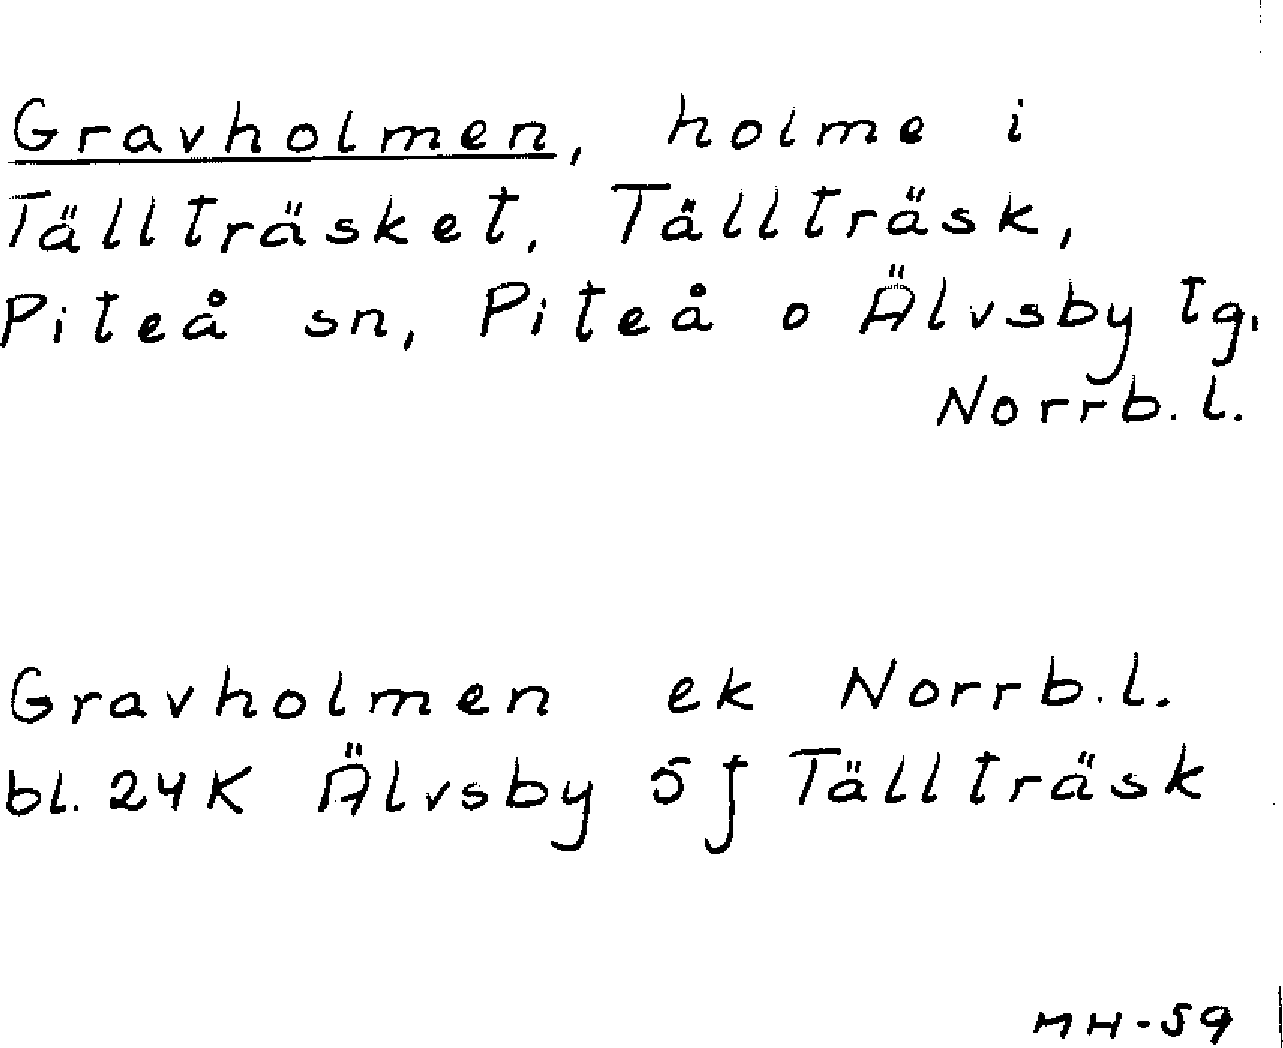 Gravholmen, holme i
Tällträsket, Tällträsk,
Piteå sn, Piteå o Älvsby tg.
Norrb.l.
Gravholmen ek Norrb.l.
bl. 24K Älvsby 5 j Tällträsk
MH-59